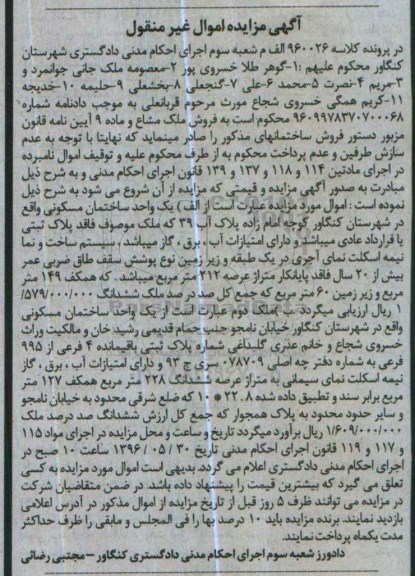 آگهی مزایده اموال غیر منقول
در پرونده کلاسه ۹۶۰۰۲۶ الف م شعبه سوم اجرای احکام مدنی دادگستری شهرستان
کنگاور محکوم علیهم :۱-گوهر طلا خسروی پور ۲-معصومه ملک جانی جوانمرد و
۳-مریم ۴-نصرت ۵-محمد ۶-علی ۷-گنجعلی ۸-بخشعلی ۹-حلیمه ۱۰-خدیجه
۱۱-کریم همگی خسروی شجاع مورث مرحوم قربانعلی به موجب دادنامه شماره
۹۶۰۹۹۷۸۳۷۰۷۰۰۰۶۸ محکوم است به فروش ملک مشاع و ماده ۹ آیین نامه قانون
مزبور دستور فروش ساختمانهای مذکور را صادر مینماید که نهایتا با توجه به عدم
سازش طرفین و عدم پرداخت محکوم به از طرف محکوم علیه و توقیف اموال نامبرده
در اجرای مادتین ۱۱۴ و ۱۱۸ و ۱۳۷ و ۱۳۹ قانون اجرای احکام مدنی و به شرح ذیل
مبادرت به صدور آگهی مزایده و قیمتی که مزایده از آن شروع می شود به شرح ذیل
نموده است : اموال مورد مزایده عبارت است از الف) یک واحد ساختمان مسکونی واقع
در شهرستان کنگاور کوچه امام زاده پلاک آب ۳۹ که ملک موصوف فاقد پلاک ثبتی
یا قرارداد عادی میباشد و دارای امتیازات آب ، برق ، گاز میباشد ، سیستم ساخت و نما
نیمه اسکلت نمای آجری در یک طبقه و زیر زمین نوع پوشش سقف طاق ضربی عمر
بیش از ۲۰ سال فاقد پایانکار متراژ عرصه ۲۱۲ متر مربع میباشد . که همکف ۱۴۹ متر
مربع و زیر زمین ۶۰ متر مربع که جمع کل صد در صد ملک ششدانگ ۵۷۹/۰۰۰/۰۰۰/
۱ ریال ارزیابی میگردد ب )ملک دوم عبارت است از یک واحد ساختمان مسکونی
واقع در شهرستان کنگاور خیابان نامجو جنب حمام قدیمی رشید خان و مالکیت وراث
خسروی شجاع و خانم عذری گلبداغی شماره پلاک ثبتی باقیمانده ۴ فرعی از ۹۹۵
فرعی به شماره دفتر چه اصلی ۰۷۸۷۰۹ سری ج ۹۳ و دارای امتیازات آب ، برق ، گاز
نیمه اسکلت نمای سیمانی به متراژ عرصه ششدانگ ۲۲۸ متر مربع همکف ۱۲۷ متر
مربع برابر سند و تطبیق داده شده ۲۲.۸ * ۱۰ که ضلع شرقی محدود به خیابان نامجو
و سایر حدود محدود به پلاک همجوار که جمع کل ارزش ششدانگ صد درصد ملک
۱/۶۰۹/۰۰۰/۰۰۰ ریال برآورد میگردد تاریخ و ساعت و محل مزایده در اجرای مواد ۱۱۵
و ۱۱۷ و ۱۱۹ قانون اجرای احکام مدنی تاریخ ۳۰ / ۰۵ / ۱۳۹۶ ساعت ۱۰ صبح در
اجرای احکام مدنی دادگستری اعلام می گردد. بدیهی است اموال مورد مزایده به کسی
تعلق می گیرد که بیشترین قیمت را پیشنهاد داده باشد. در ضمن متقاضیان شرکت
در مزایده می توانند ظرف ۵ روز قبل از تاریخ مزایده از اموال مذکور در آدرس اعلامی
بازدید نمایند. برنده مزایده باید ۱۰ درصد بها را فی المجلس و مابقی را ظرف حداکثر
مدت یکماه پرداخت نمایند.
دادورز شعبه سوم اجرای احکام مدنی دادگستری کنگاور – مجتبی رضائی